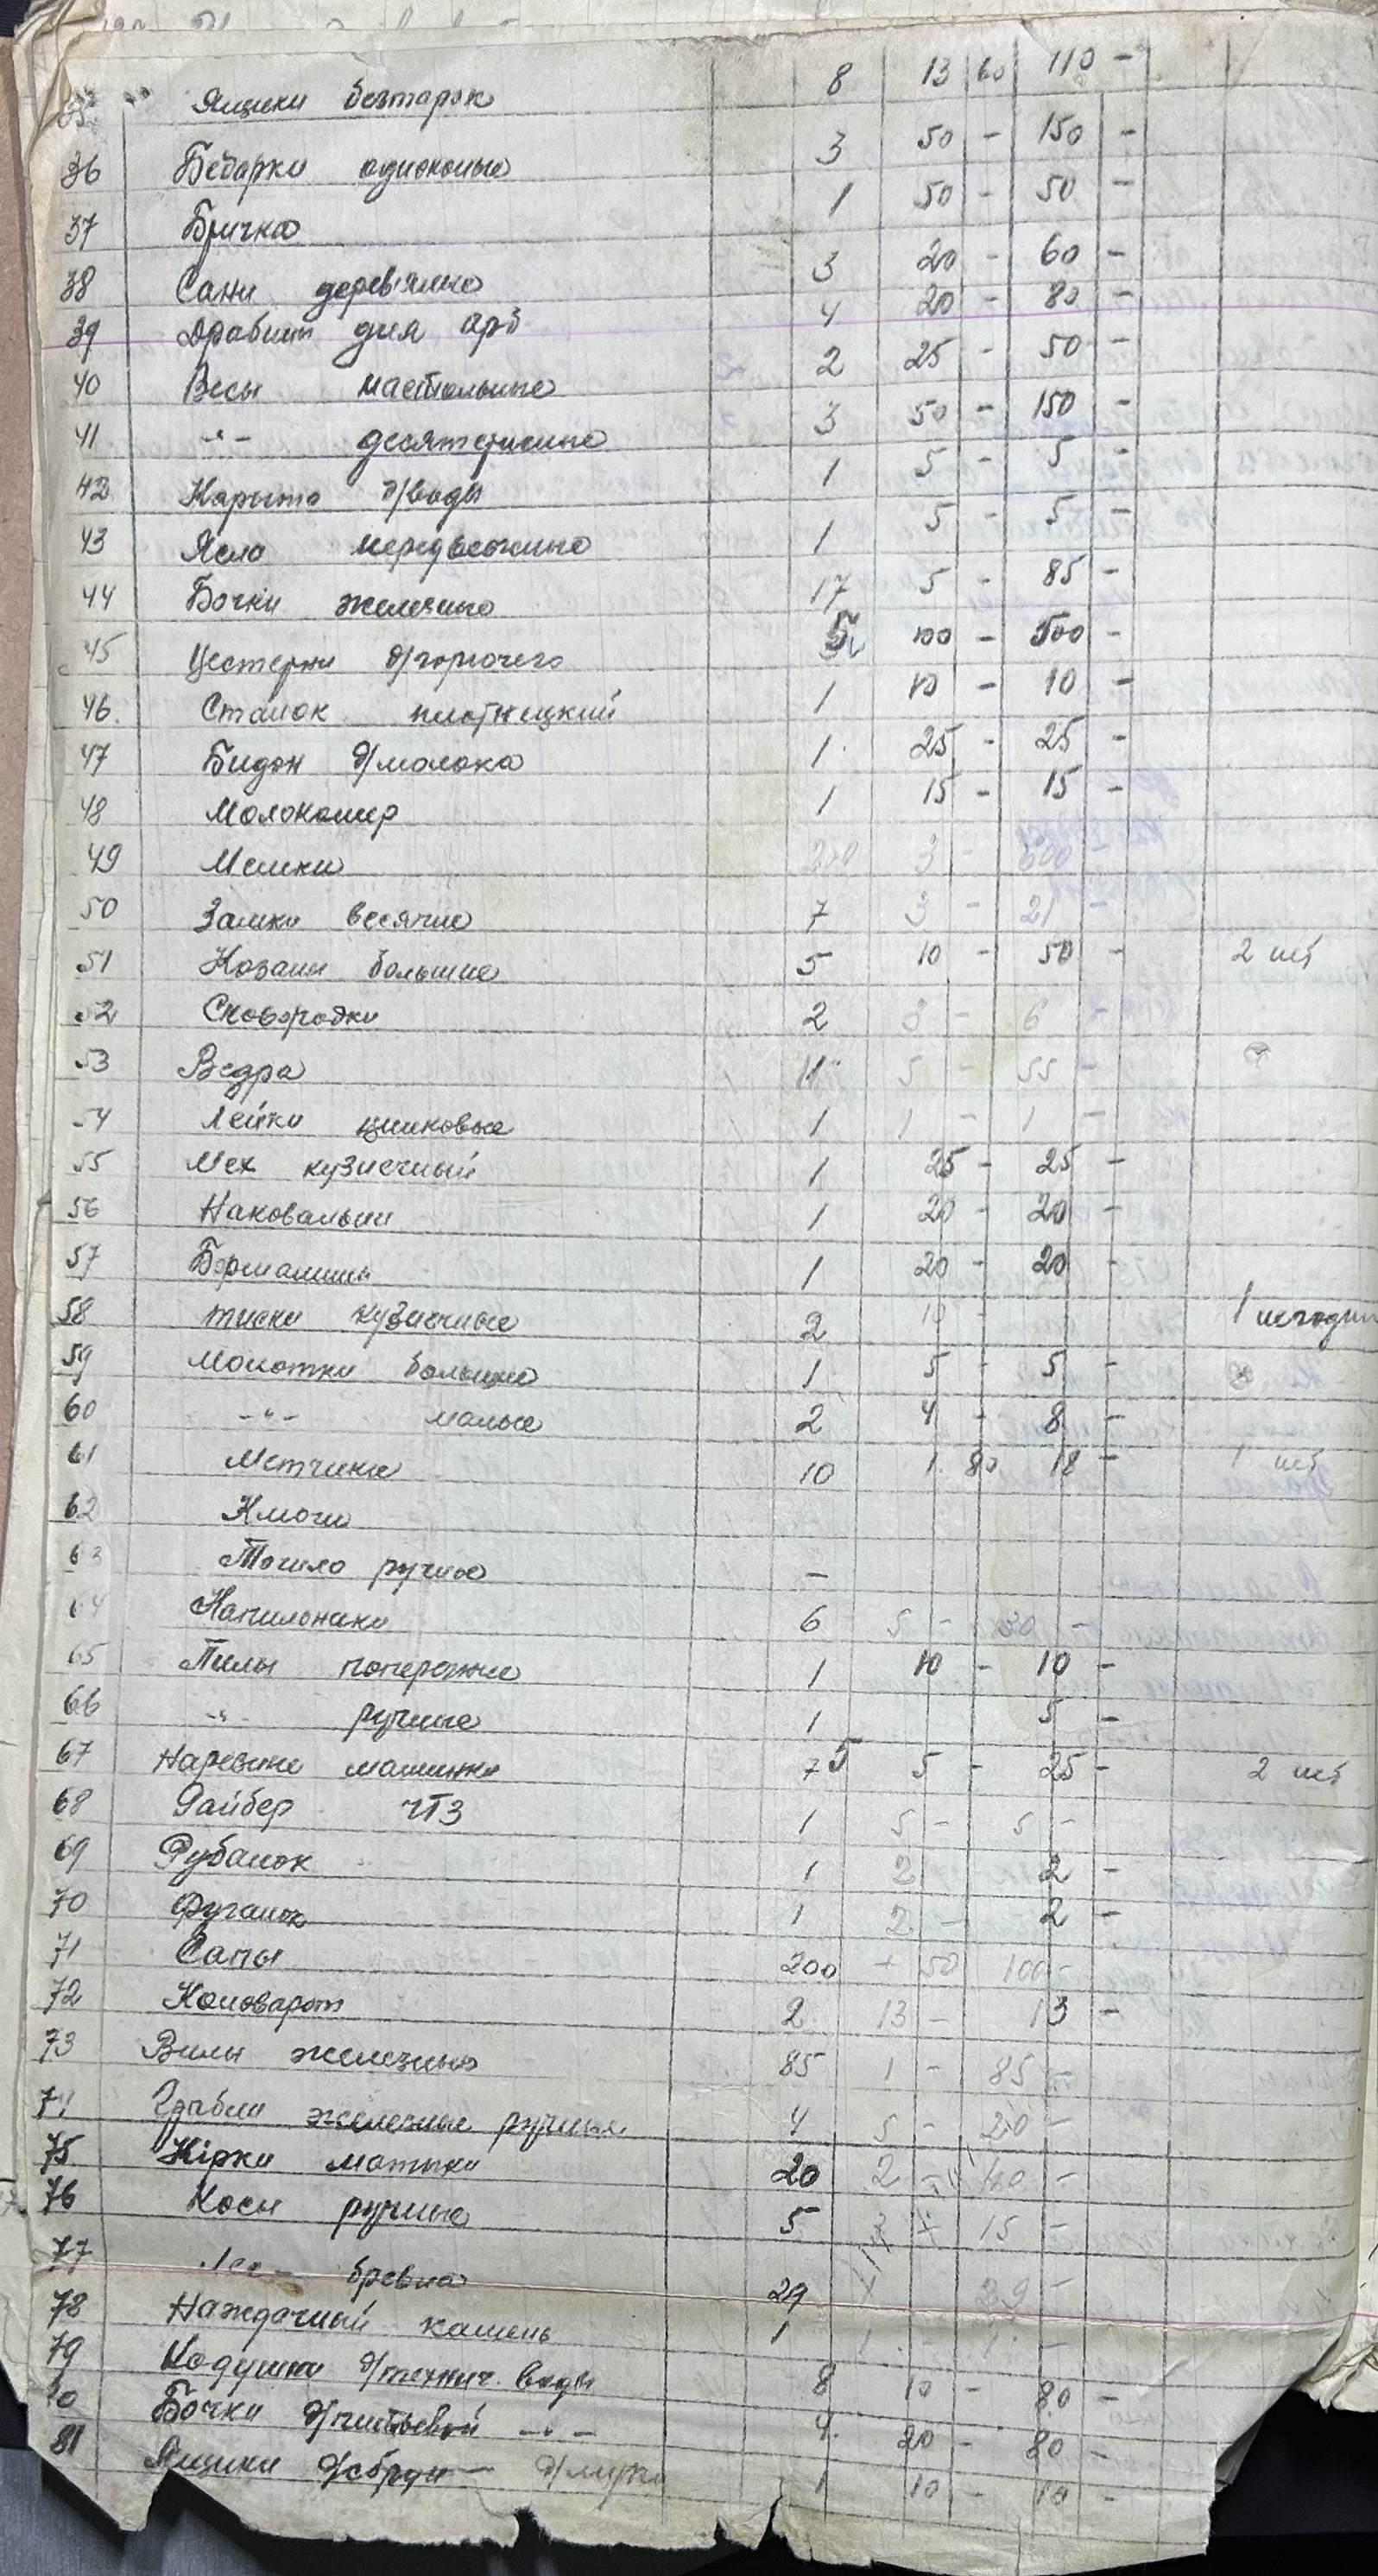 35 Ящики безтарок 8 13 60 110 -
36 Бедарки одноконные 3 50 - 150 -
37 Бричка 1 50 - 50 -
38 Сани деревяные 3 20 - 60 -
39 Драбины для арб 4 20 - 80 -
40 Весы настольные 2 25 - 50 -
41 -"- десятеричные 3 50 - 150 -
42 Карыто д/воды 1 5 - 5 -
43 Ясла 1 5 - 5 -
44 Бочки железные 17 5 - 85 -
45 Цестерни д/горючего 5 100 - 500 -
46. Станок плотницкий 1 10 - 10 -
47 Бидон д/молока 1 25 - 25 -
48 Молокомер 1 15 - 15 -
49 Мешки 200 3 - 600
50 Замки весячие 7 3 - 21 -
51 Козаны большие 5 10 - 50 - 2 шт
52 Сковородки 2 3 - 6 -
53 Ведра 11 5 - 55 -
54 Лейки цинковые 1 1 - 1 -
55 Мех кузнечный 1 25 - 25 -
56 Наковальни 1 20 - 20 -
57 1 20 - 20 -
58 тиски кузнечные 2 10 1
59 Молотки большие 1 5 - 5 -
60 -"- малые 2 4 - 8 -
61 Метчики 10 1 80 18 - 1 шт
62 Ключи
63 Точило ручное -
64 Напильники 6 5 - 30 -
65 Пилы поперечные 1 10 - 10 -
66 -"- ручные 1 5 -
67 Нарезные машинки 5 5 - 25 - 2 шт
68 Райбер ЧТЗ 1 5 - 5 -
69 Рубанок 1 2 2 -
70 Фуганок 1 2 - 2 -
71 Сапы 200 50 100 -
72 Коловорот 2 13 - 13 -
73 Вилы железные 85 1 - 85 -
74 Грабли железные ручные 4 5 - 20 -
75. Кірки мотыки 20 2 - 40 -
76 Косы ручные 5 3 15 -
77 бревна 29 29 -
78 Наждачный камень 1 1 - 1 -
79 Кадушки д/технич. воды 8 10 - 80 -
80 Бочки д/питьевой -"- 4 20 - 80 -
81 Ящики д/сбруи - 1 10 - 10 -